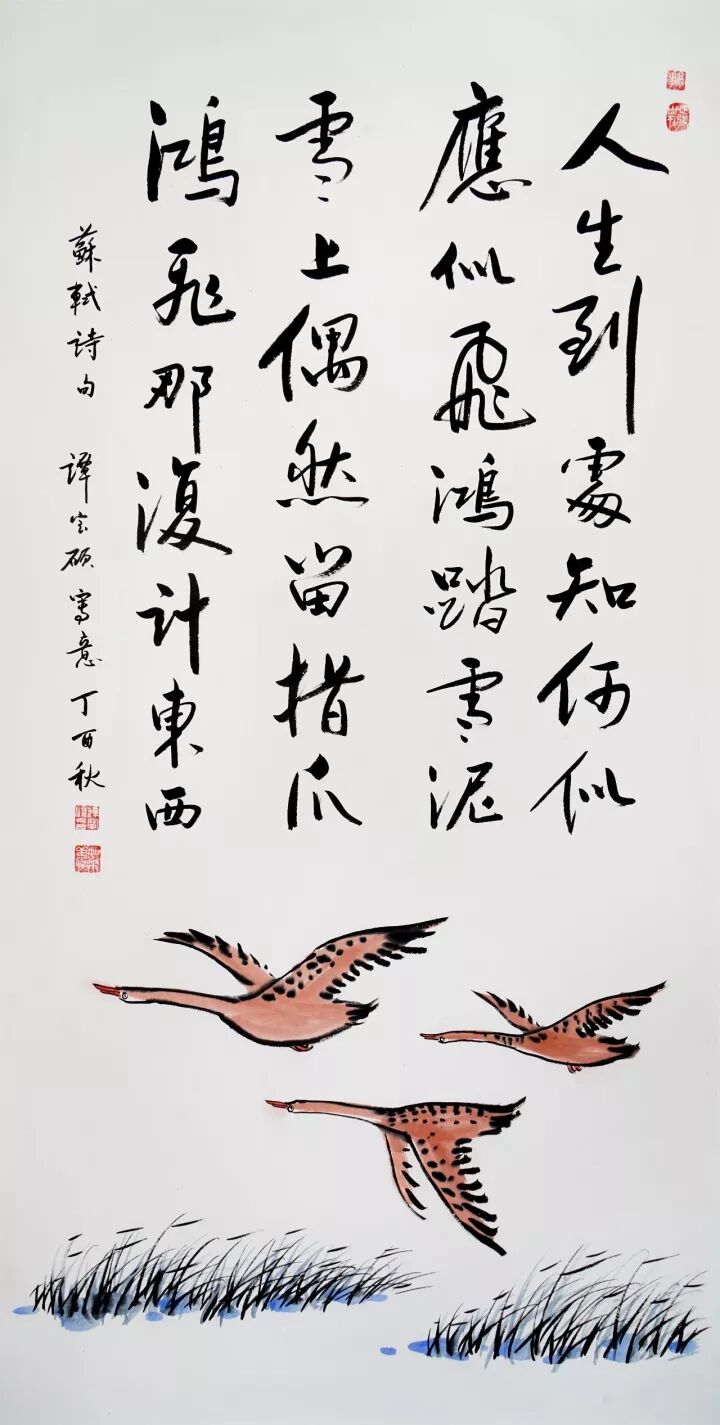 人生到處知何似
應似飛鴻踏雪泥
雪上偶然留指爪
鴻飛那復計東西
蘇軾詩句 譚硕寫意 丁酉秋